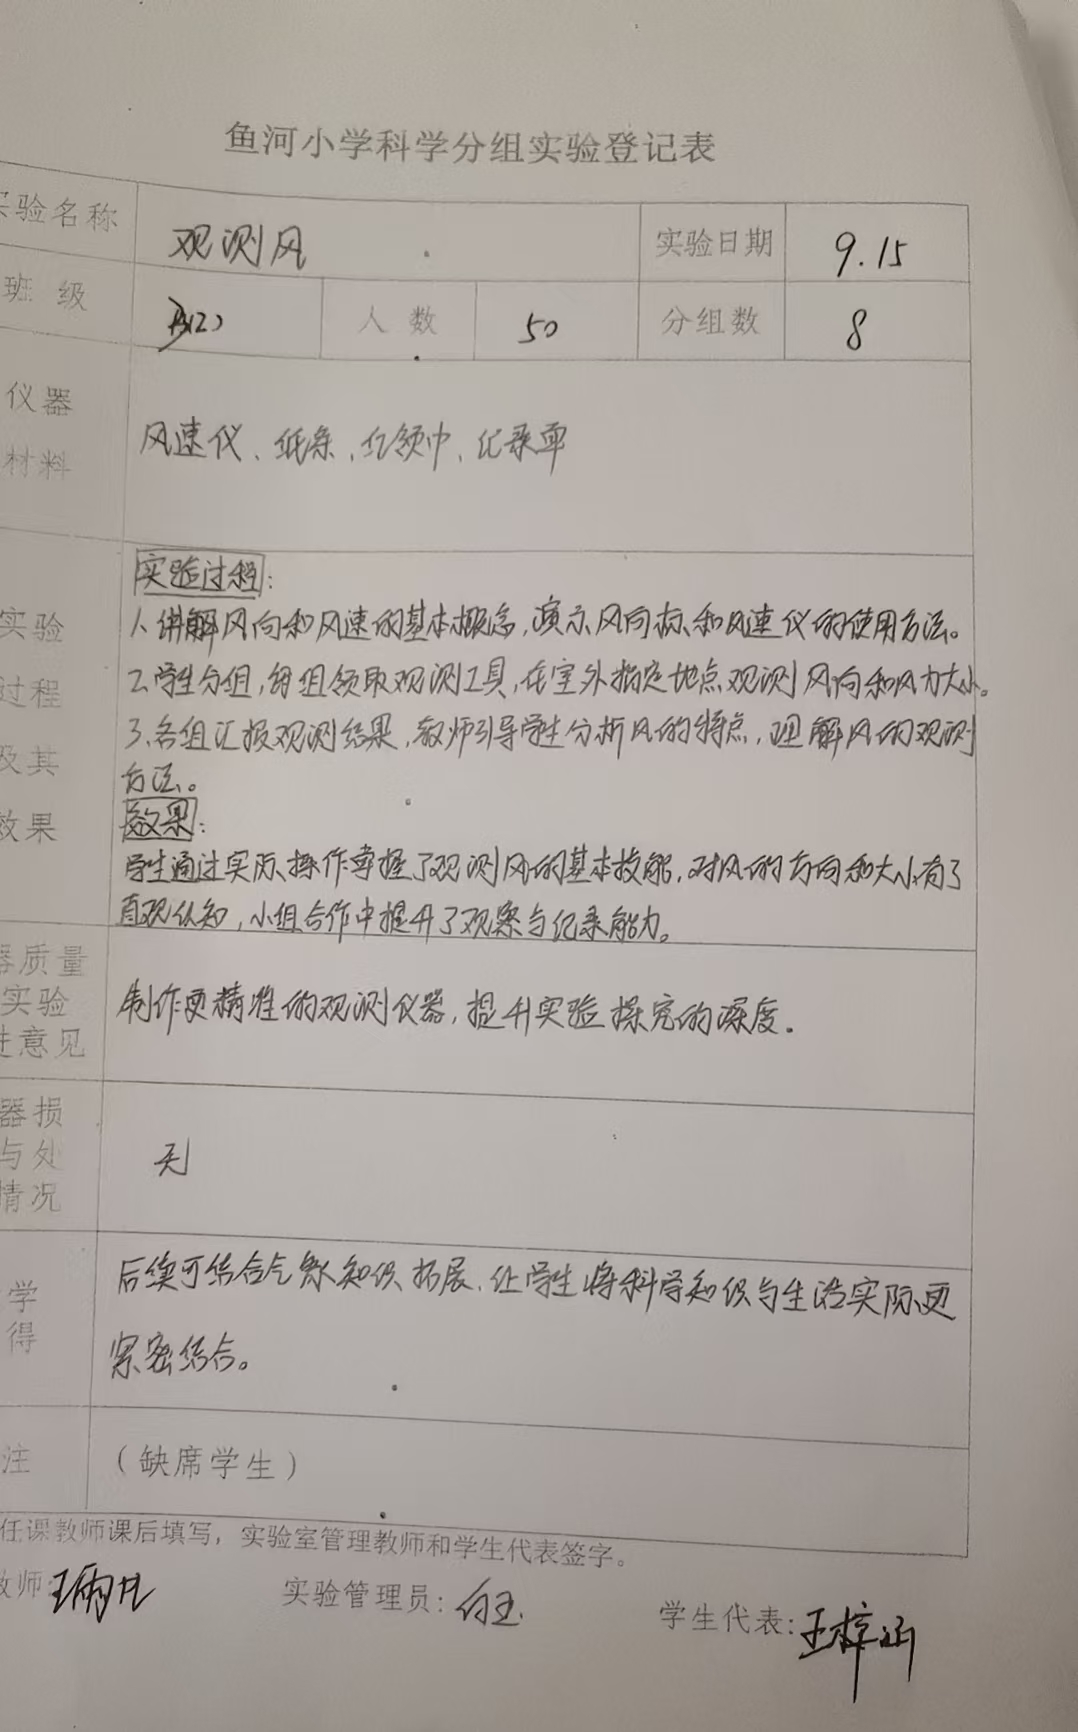 鱼河小学科学分组实验登记表
验名称 观测风 实验日期 9.15
班 级 (2) 人 数 50 分组数 8
仪器
材料
风速仪、纸条、红领巾、记录单
实验
过程
及其
效果
实验过程:
1、讲解风向和风速的基本概念,演示风向标和风速仪的使用方法。
2.学生分组,每组领取观测工具,在室外指定地点观测风向和风力大小。
3.各组汇报观测结果,教师引导学生分析风的特点,理解风的观测
方法。
效果:
学生通过实际操作掌握了观测风的基本技能,对风的方向和大小有了
直观认知,小组合作中提升了观察与纪录能力。
器质量
实验
进意见
制作更精准的观测仪器,提升实验探究的深度.
器损
与处
情况
无
学
得
后续可结合气象知识拓展,让学生将科学知识与生活实际更
紧密结合。
注 (缺席学生)
任课教师课后填写,实验室管理教师和学生代表签字。
教师: 实验管理员: 白玉 学生代表: 王梓涵